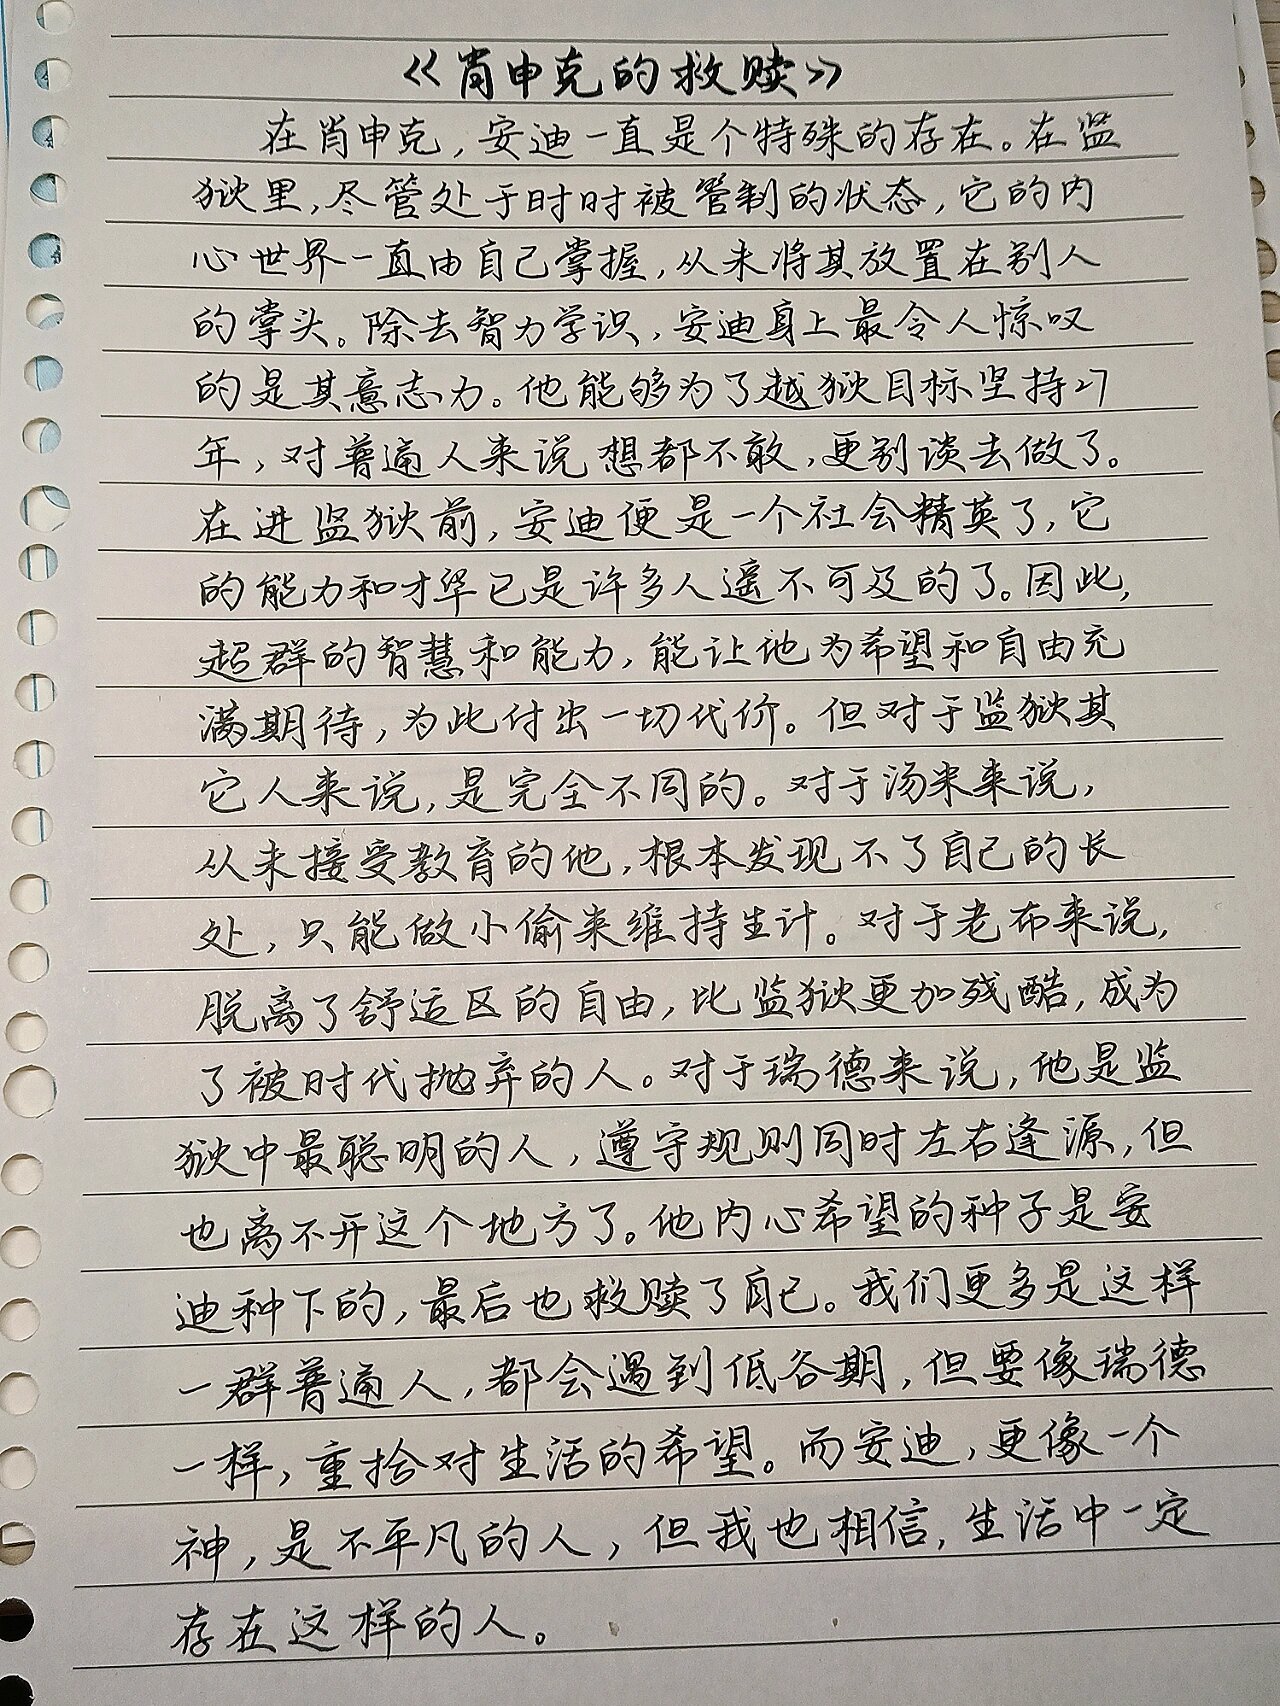 《肖申克的救赎》
在肖申克,安迪一直是个特殊的存在。在监
狱里,尽管处于时时被管制的状态,它的内
心世界一直由自己掌握,从未将其放置在别人
的掌头。除去智力学识,安迪身上最令人惊叹
的是其意志力。他能够为了越狱目标坚持27
年,对普通人来说想都不敢,更别谈去做了。
在进监狱前,安迪便是一个社会精英了,它
的能力和才华已是许多人遥不可及的了。因此,
超群的智慧和能力,能让他为希望和自由充
满期待,为此付出一切代价。但对于监狱其
它人来说,是完全不同的。对于汤米来说,
从未接受教育的他,根本发现不了自己的长
处,只能做小偷来维持生计。对于老布来说,
脱离了舒适区的自由,比监狱更加残酷,成为
了被时代抛弃的人。对于瑞德来说,他是监
狱中最聪明的人,遵守规则同时左右逢源,但
也离不开这个地方了。他内心希望的种子是安
迪种下的,最后也救赎了自己。我们更多是这样
一群普通人,都会遇到低谷期,但要像瑞德
一样,重拾对生活的希望。而安迪,更像一个
神,是不平凡的人,但我也相信,生活中一定
存在这样的人。